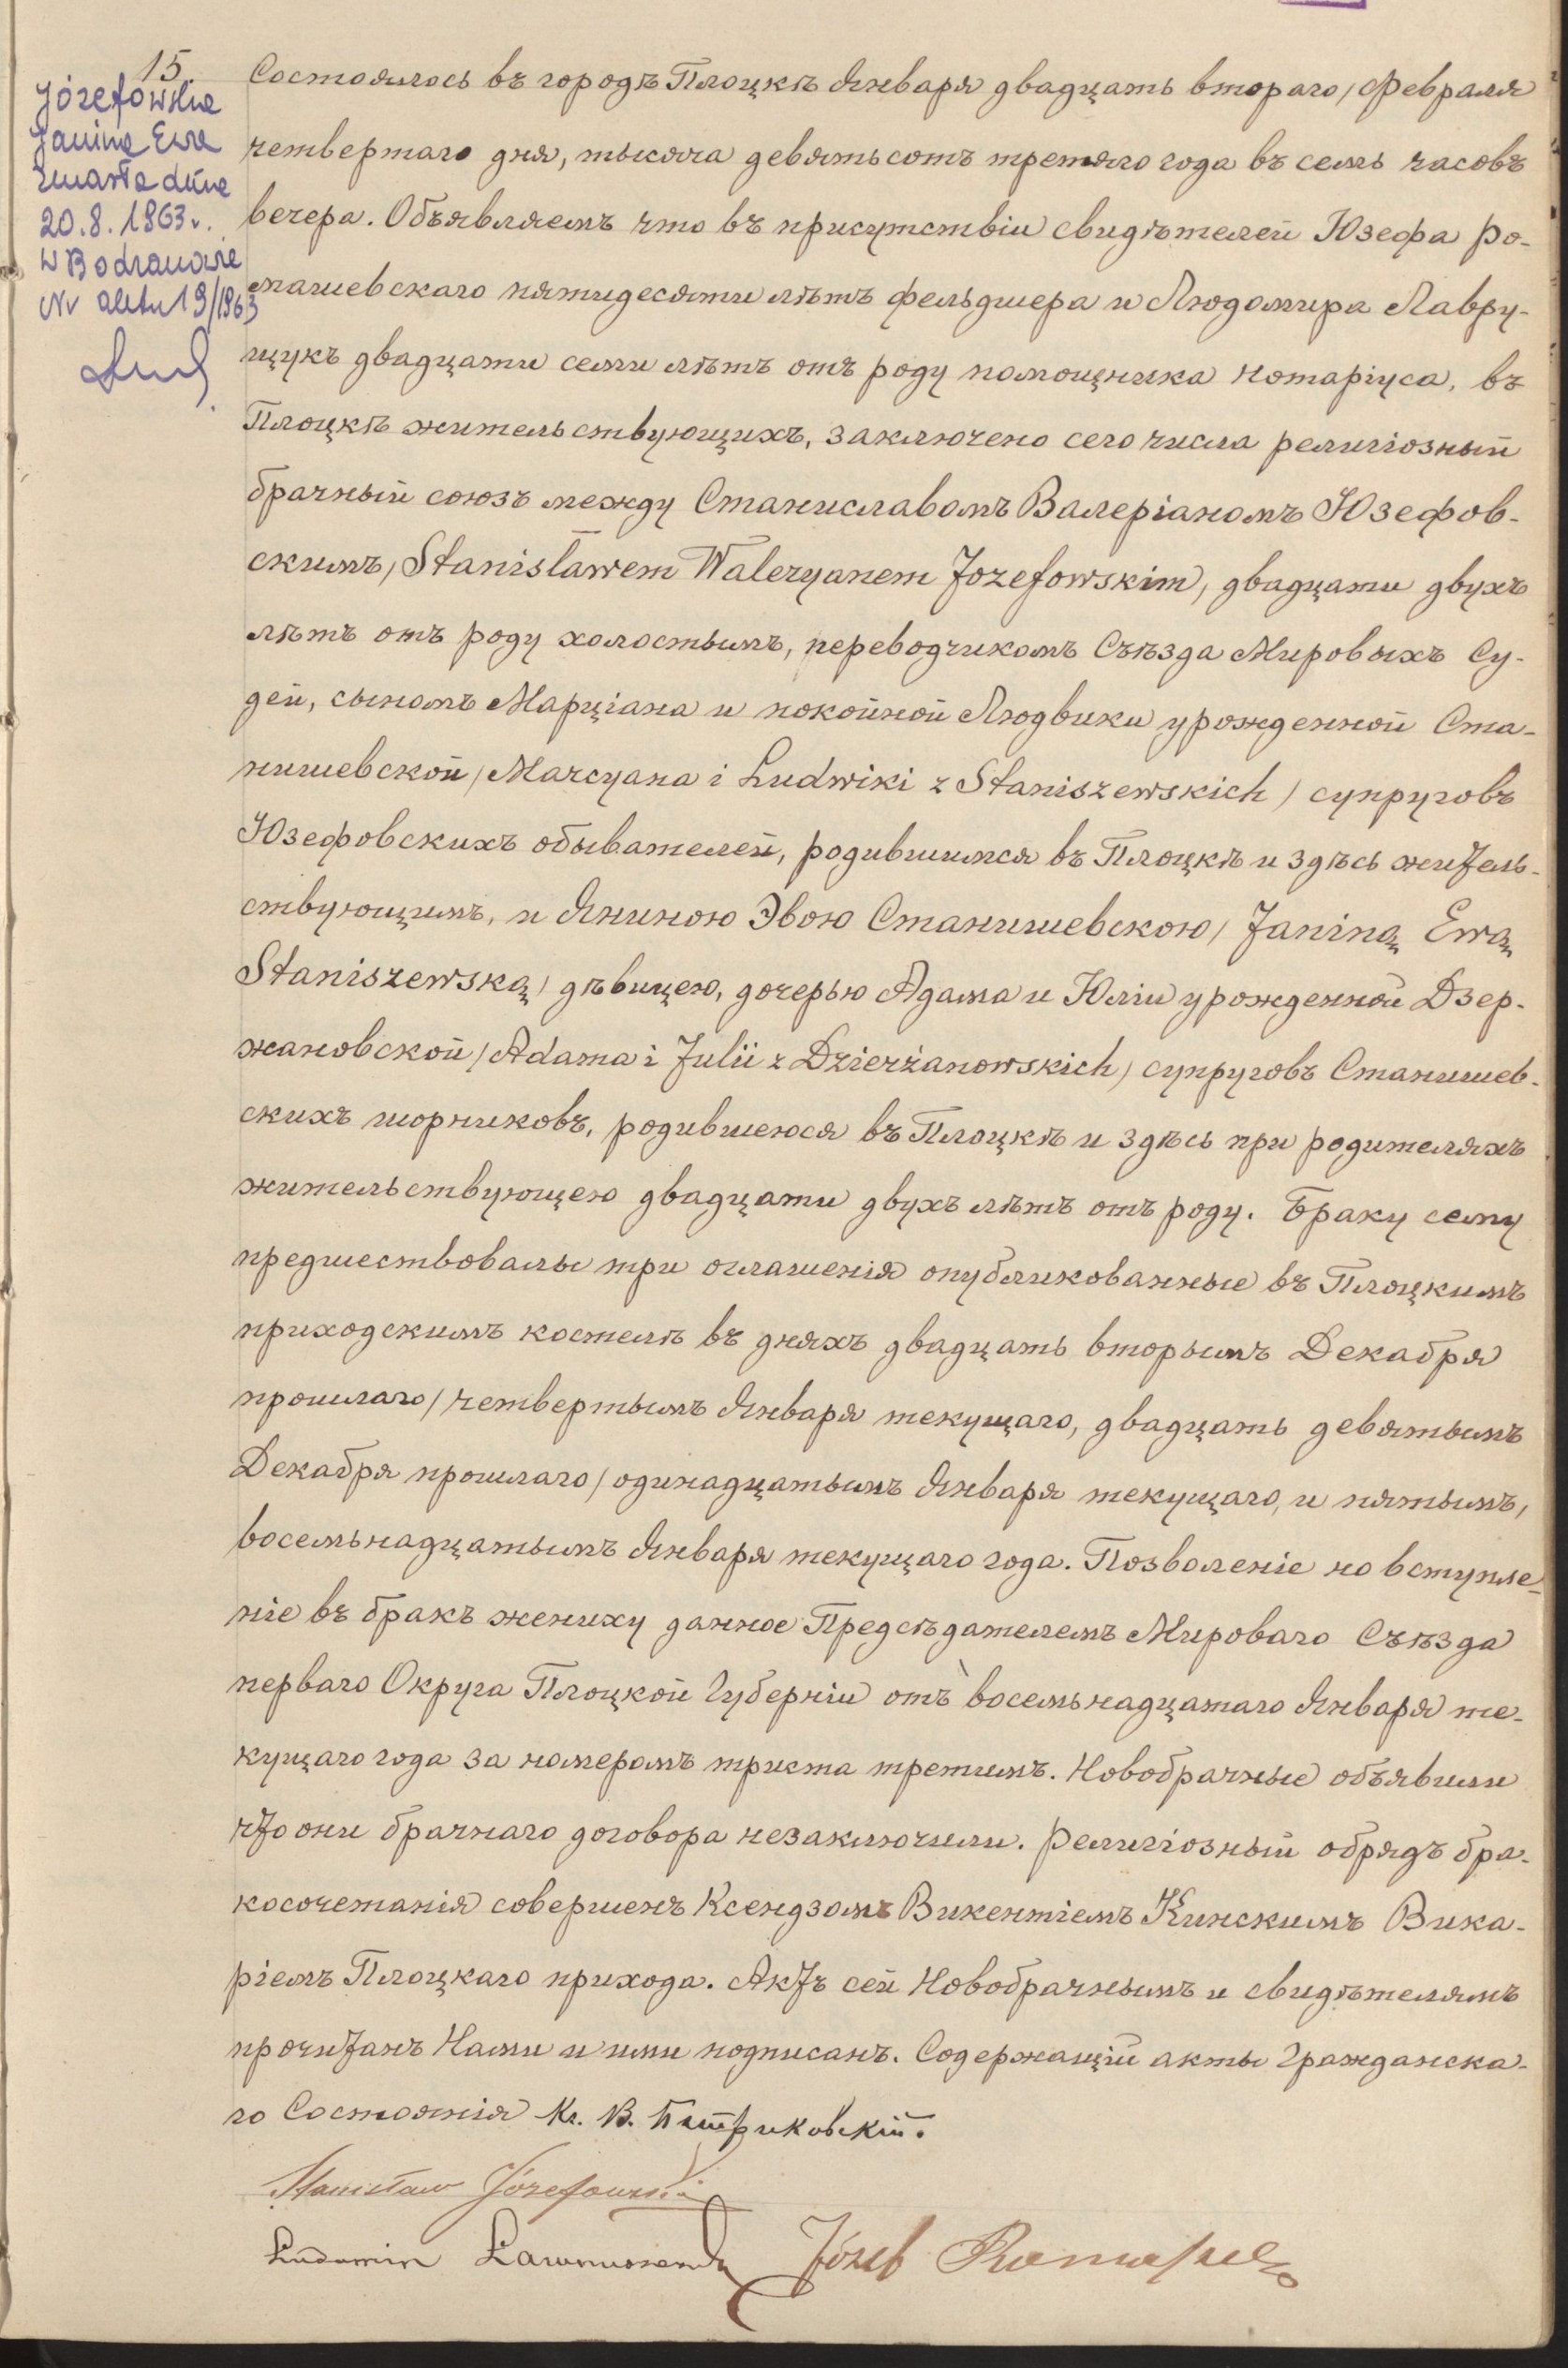 15.
Józefowska
Janina Ewa
zmarła dnia
20.8.1963 r.
w Bodzanowie
Nr aktu 19/1963
Состоялось въ городѣ Плоцкѣ Января двадцать втораго / Февраля
четвертаго дня, тысяча девятьсотъ третяго года въ семь часовъ
вечера. Объявляемъ что въ присутствіи свидѣтелей Юзефа Ро-
машевскаго пятидесяти лѣтъ фельдшера и Людомира Лавру-
щукъ двадцати семи лѣтъ отъ роду помощника нотаріуса, въ
Плоцкѣ жительствующихъ, заключено сего числа религіозный
брачный союзъ между Станиславомъ Валеріаномъ Юзефов-
скимъ, /Stanisławem Waleryanem Jozefowskim/, двадцати двухъ
лѣтъ отъ роду холостымъ, переводчикомъ Съѣзда Мировыхъ Су-
дей, сыномъ Марціана и покойной Людвики урожденной Ста-
нишевской /Marcyana i Ludwiki z Staniszewskich/ супруговъ
Юзефовскихъ обывателей, родившимся въ Плоцкѣ и здѣсь житель-
ствующимъ, и Яниною Эвою Станишевскою / Janiną Ewą
Staniszewską / дѣвицею, дочерью Адама и Юліи урожденной Дзер-
жановской /Adama i Julii z Dzierżanowskich/ супруговъ Станишев-
скихъ шорниковъ, родившеюся въ Плоцкѣ и здѣсь при родителяхъ
жительствующею двадцати двухъ лѣтъ отъ роду. Браку сему
предшествовалы три оглашенія опубликованные въ Плоцкимъ
приходскимъ костелѣ въ дняхъ двадцать вторымъ Декабря
прошлаго / четвертымъ Января текущаго, двадцать девятымъ
Декабря прошлаго / одинадцатымъ Января текущаго, и пятымъ /
восемьнадцатымъ Января текущаго года. Позволеніе но вступле-
ніе въ бракъ жениху данное Предсѣдателемъ Мироваго Съѣзда
перваго Округа Плоцкой Губерніи отъ восемьнадцатаго Января те-
кущаго года за номеромъ триста третимъ. Новобрачные объявили
что они брачнаго договора незаключили. Религіозный обрядъ бра-
косочетанія совершенъ Ксендзомъ Викентіемъ Кинскимъ Вика-
ріемъ Плоцкаго прихода. Актъ сей Новобрачнымъ и свидѣтелямъ
прочитанъ Нами и ими подписанъ. Содержащій акты Гражданска-
го Состоянія Кс. В.
Stanisław Józefowski
Ludomir
Józef